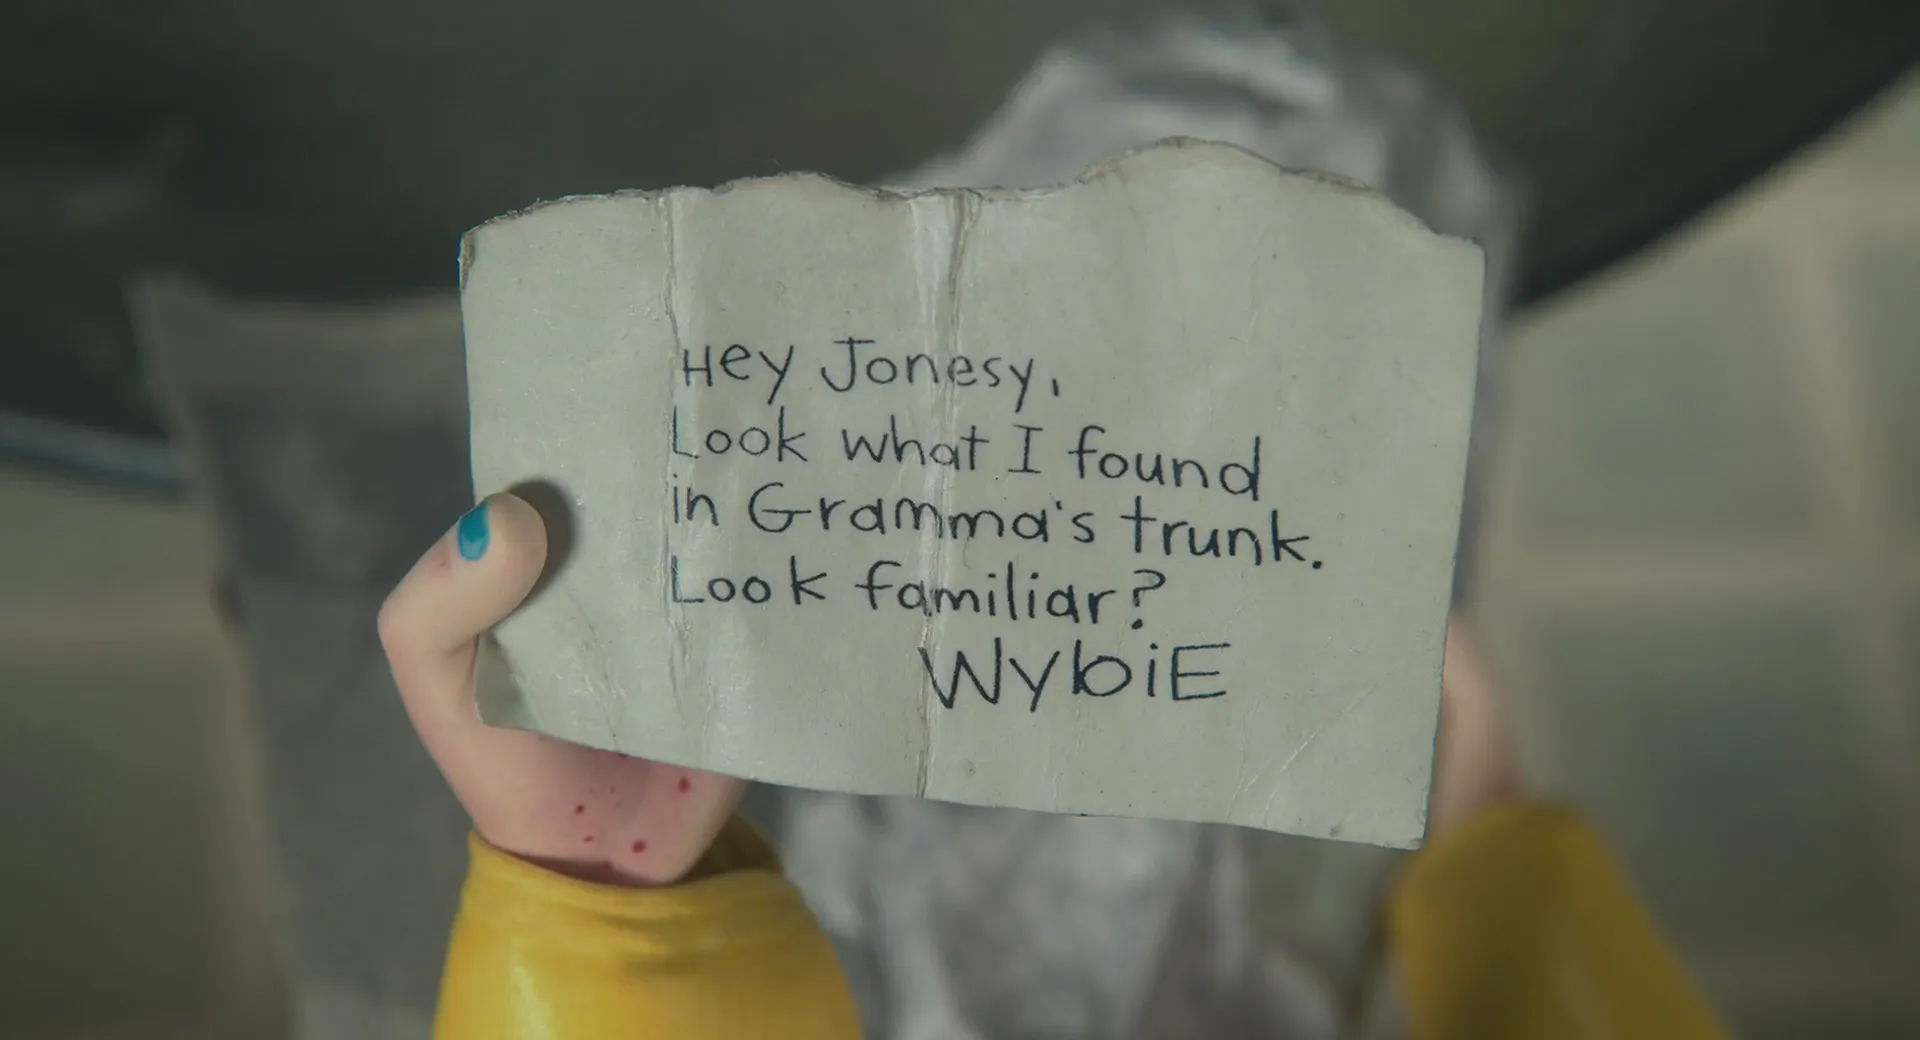 Hey Jonesy,
Look what I found
in Gramma's trunk.
Look familiar?
WybiE